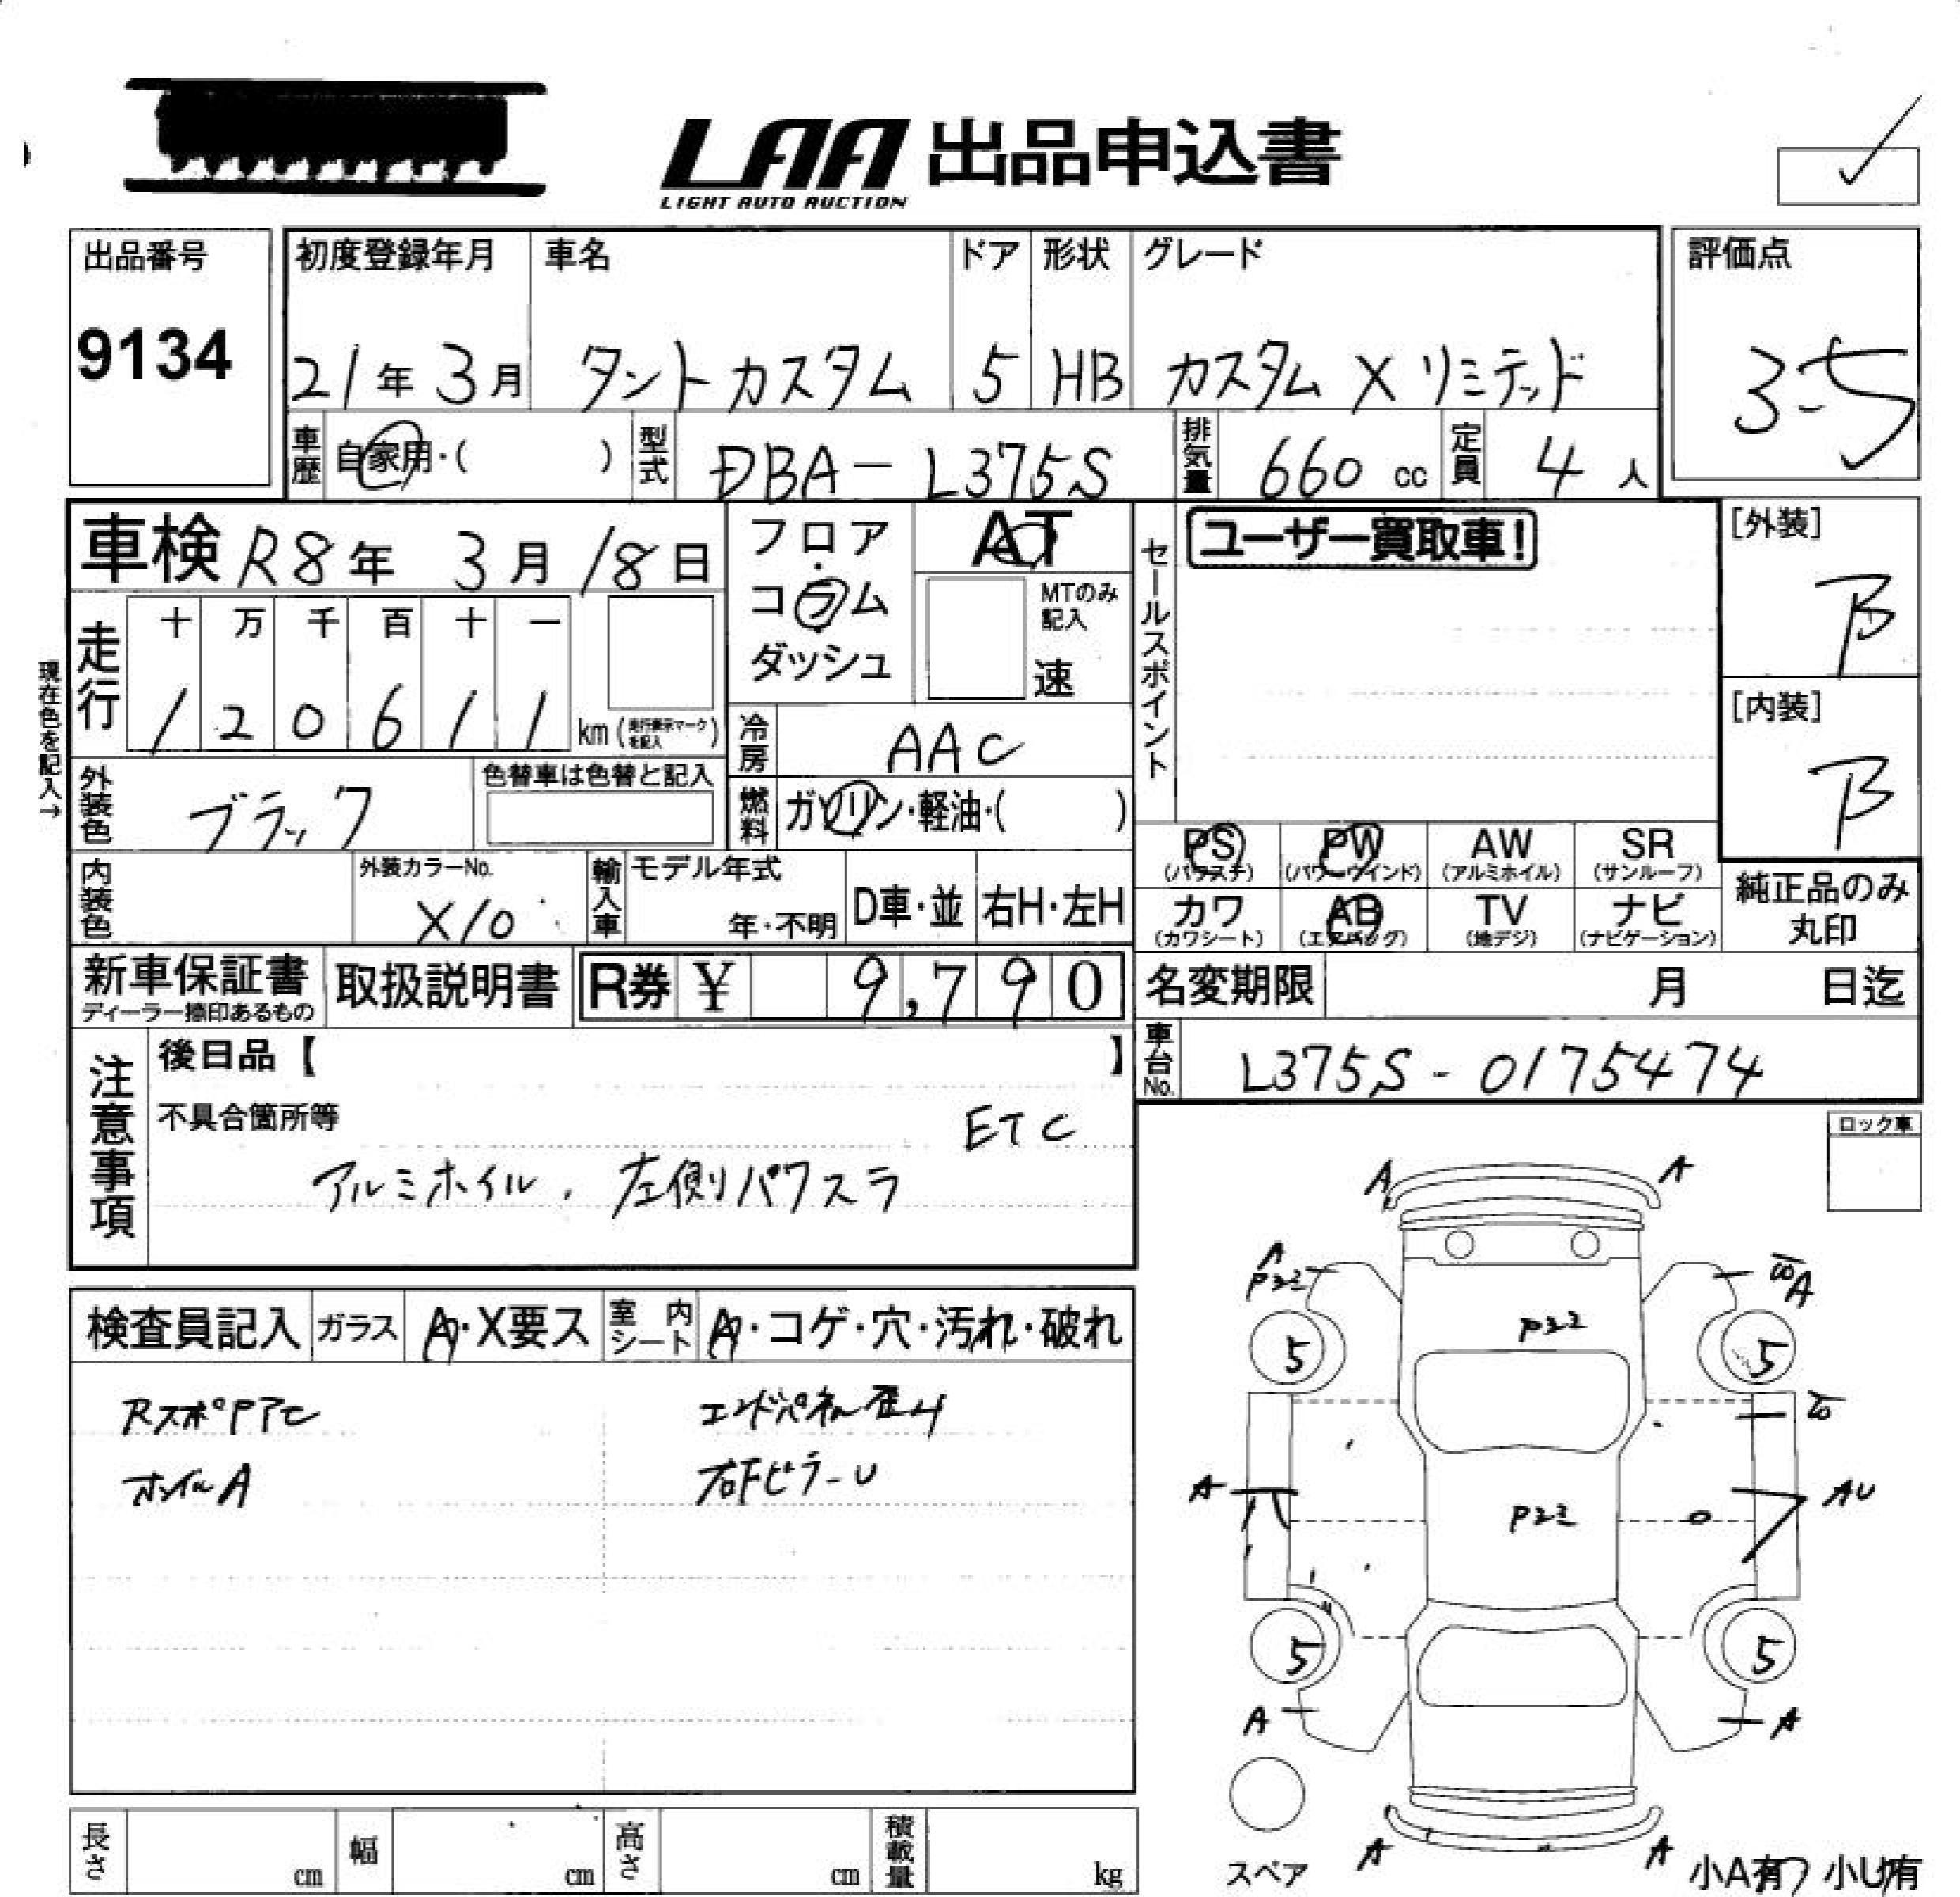 LAA 出品申込書
LIGHT AUTO AUCTION
出品番号
9134
初度登録年月 車名 ドア 形状 グレード
21年 3月 タントカスタム 5 HB カスタム X リミテッド
評価点
3.5
車歴 自家用・( ) 型式 DBA-L375S 排気量 660 cc 定員 4 人
車検 R8年 3月 18日
フロア
コラム
ダッシュ
AT
MTのみ記入
速
セールスポイント
ユーザー買取車!
[外装]
B
[内装]
B
現在色を記入→
走行 十 万 千 百 十 一
1 2 0 6 1 1 km (走行表示マークを記入)
冷房 AAC
外装色 ブラック
色替車は色替と記入
燃料 ガソリン・軽油・( )
PS (パワステ) PW (パワーウインド) AW (アルミホイル) SR (サンルーフ)
カワ (カワシート) AB (エアバッグ) TV (地デジ) ナビ (ナビゲーション)
純正品のみ丸印
内装色 外装カラーNo. X10
輸入車 モデル年式 年・不明 D車・並 右H・左H
新車保証書
ディーラー捺印あるもの
取扱説明書
R券 ¥ 9,790
名変期限 月 日迄
車台No. L375S-0175474
注意事項
後日品【 】
不具合箇所等
ETC
アルミホイル, 左側パワスラ
ロック車
検査員記入 ガラス A・X要ス 室内シート A・コゲ・穴・汚れ・破れ
RスポPアC エンドパネル歪み
ホイルA 右FピラーU
A A
A
P22 A
P22
5 5
A AU
P22
5 5
A A
A A
スペア
小A有 小U有
長さ cm 幅 cm 高さ cm 積載量 kg